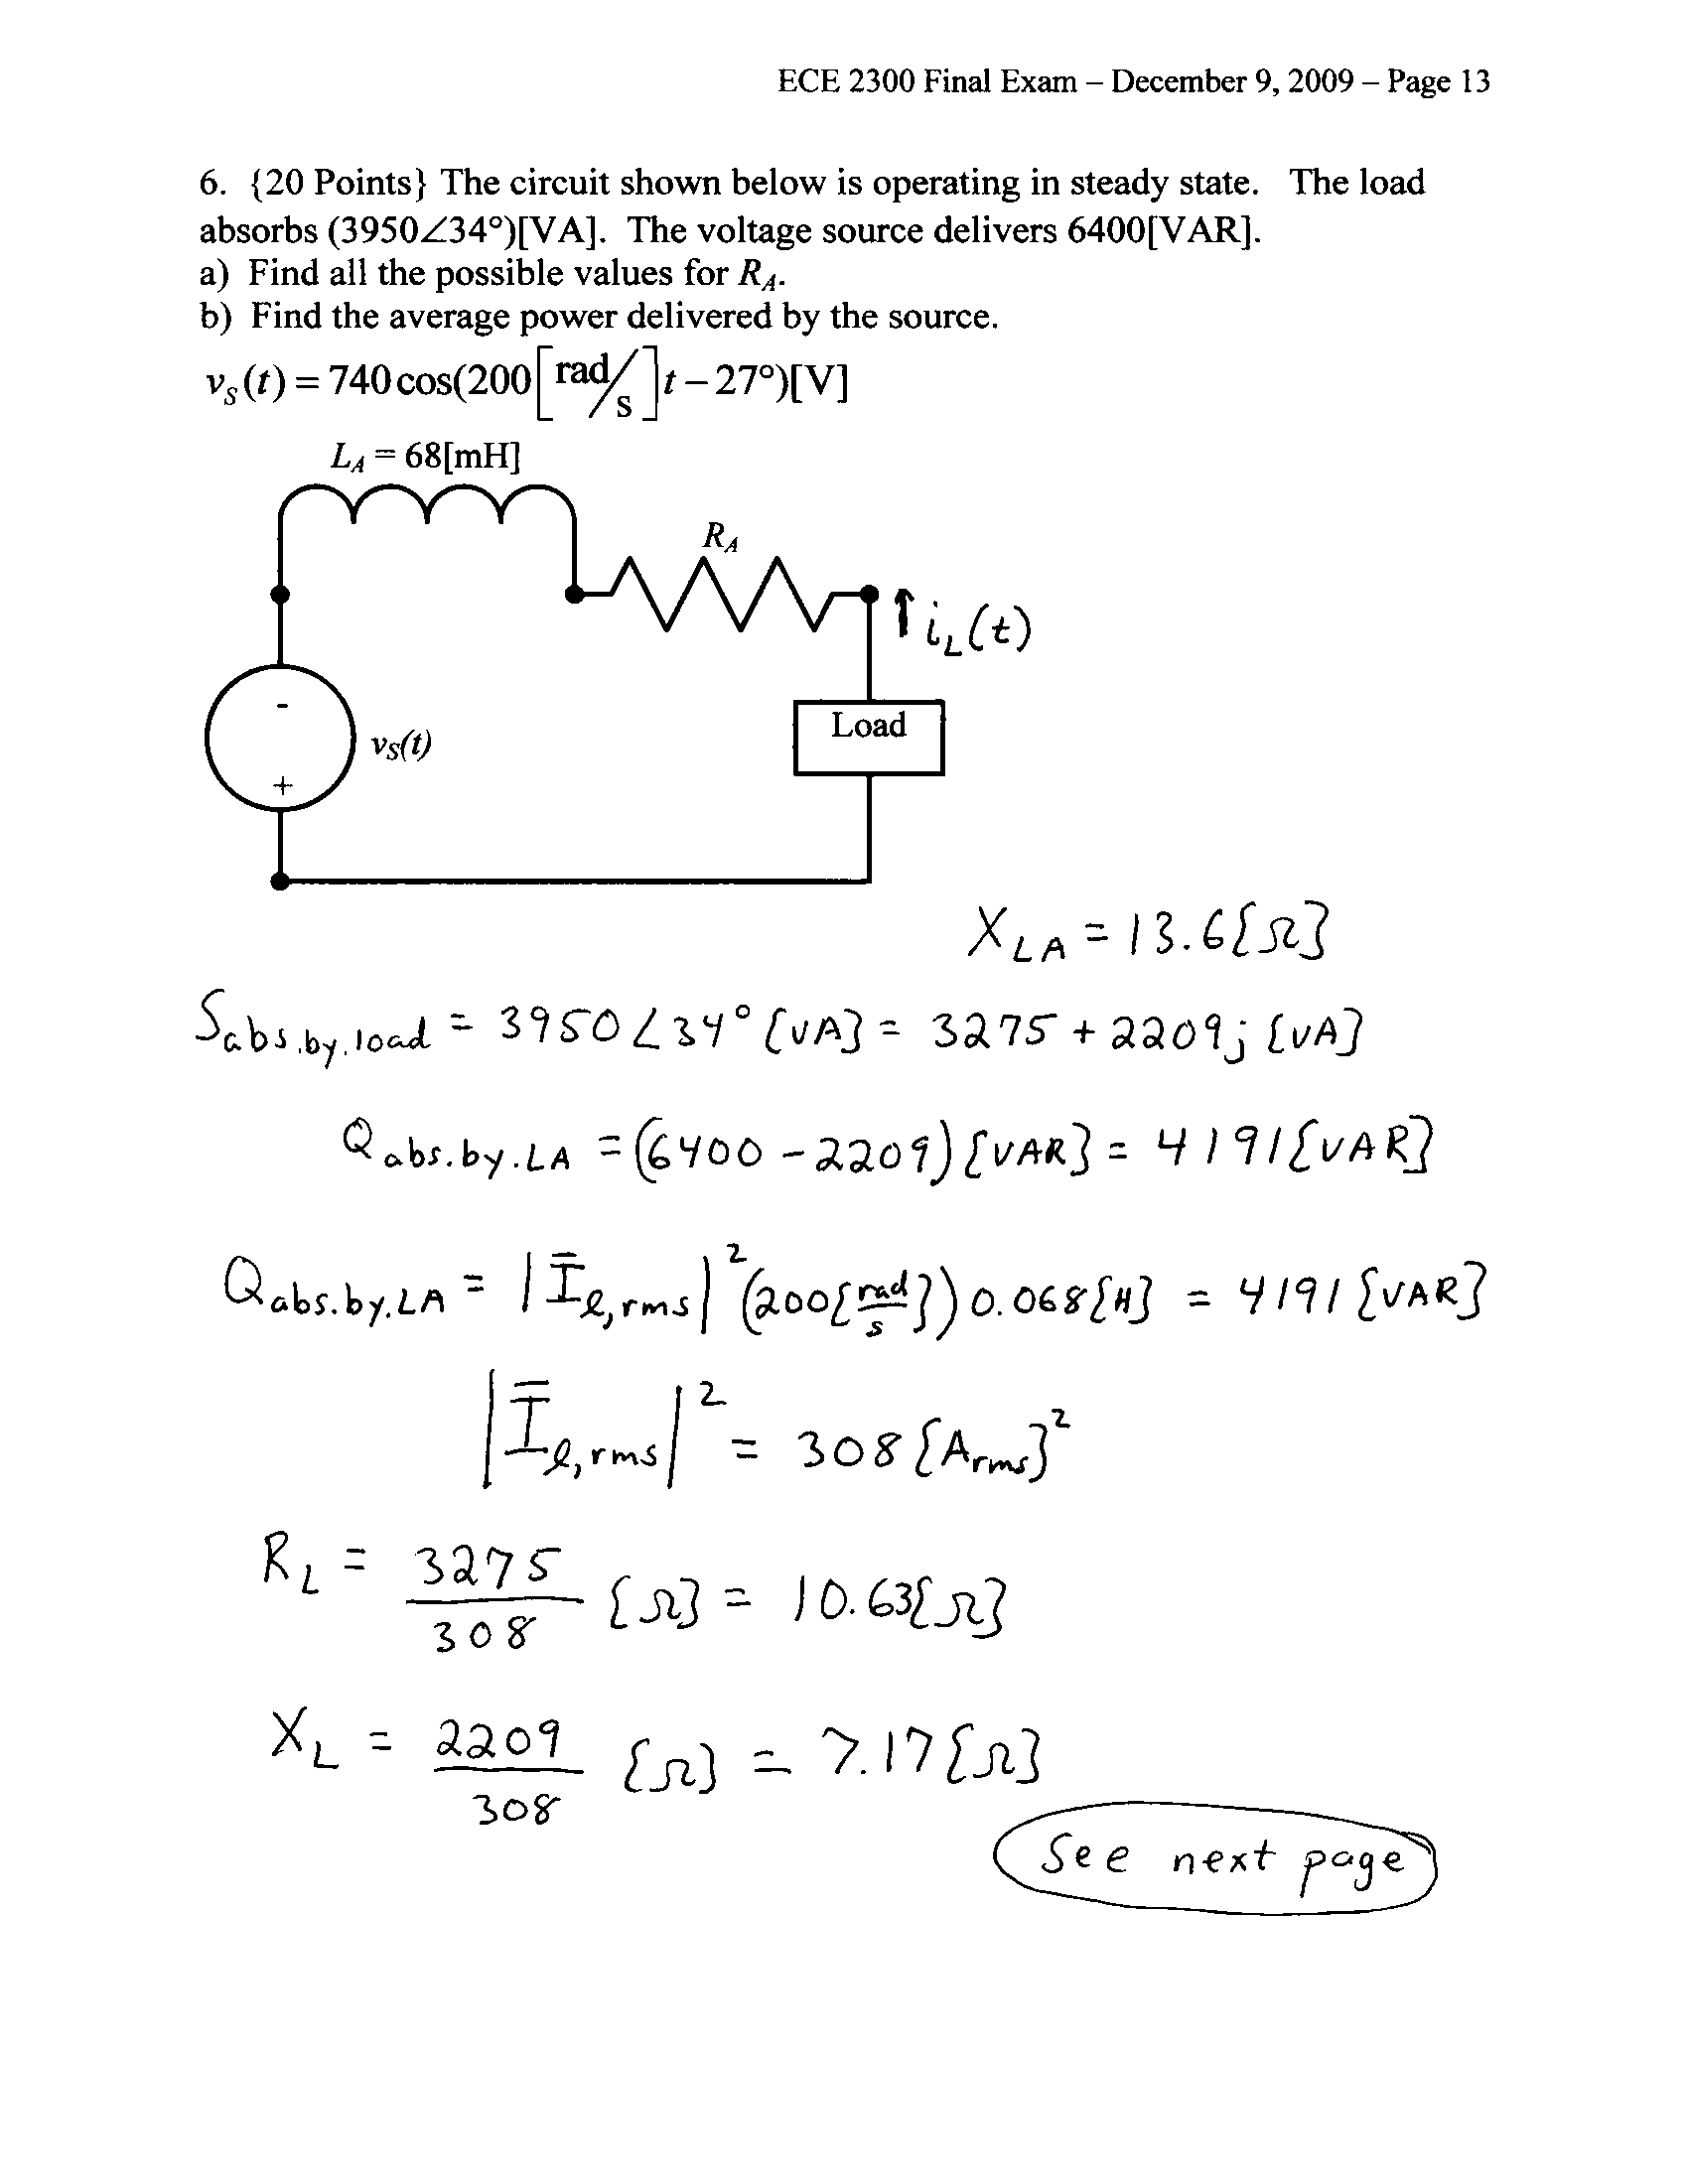 ECE 2300 Final Exam – December 9, 2009 – Page 13
6. {20 Points} The circuit shown below is operating in steady state. The load
absorbs (3950∠34°)[VA]. The voltage source delivers 6400[VAR].
a) Find all the possible values for R_A.
b) Find the average power delivered by the source.
v_S(t) = 740 cos(200[rad/s]t − 27°)[V]
L_A = 68[mH]
R_A
i_L(t)
-
v_S(t)
+
Load
X_LA = 13.6[Ω]
S_abs.by.load = 3950∠34°[VA] = 3275 + 2209j [VA]
Q_abs.by.LA = (6400 − 2209)[VAR] = 4191[VAR]
Q_abs.by.LA = |I̅_ℓ,rms|² (200[rad/s]) 0.068[H] = 4191[VAR]
|I̅_ℓ,rms|² = 308[A_rms]²
R_L = 3275/308 [Ω] = 10.63[Ω]
X_L = 2209/308 [Ω] = 7.17[Ω]
See next page